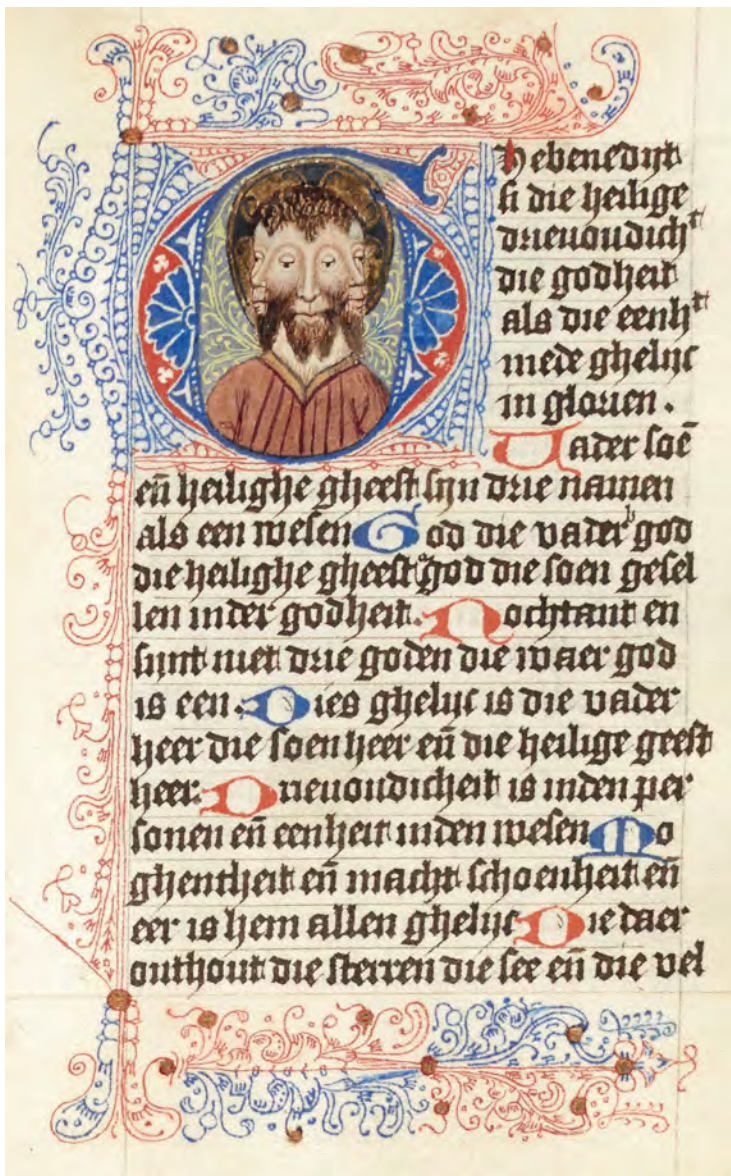 Ghebenedijt
si die heilige
drieuoudichᵗ
die godheit
als die eenhᵗ
mede ghelijc
in glorien .
Vader soē
eñ heilighe gheest sijn drie namen
als een wesen God die vader ᵇ god
die heilighe gheest ᵃ god die soen gesel
len in der godheit. Nochtant en
sijnt niet drie goden die waer god
is een. Dies ghelijc is die vader
heer die soen heer eñ die heilige geest
heer. Drieuoudicheit is inden per
sonen eñ eenheit inden wesen Mo
ghentheit eñ macht schoenheit eñ
eer is hem allen ghelijc Die daer
onthout die sterren die see eñ die vel